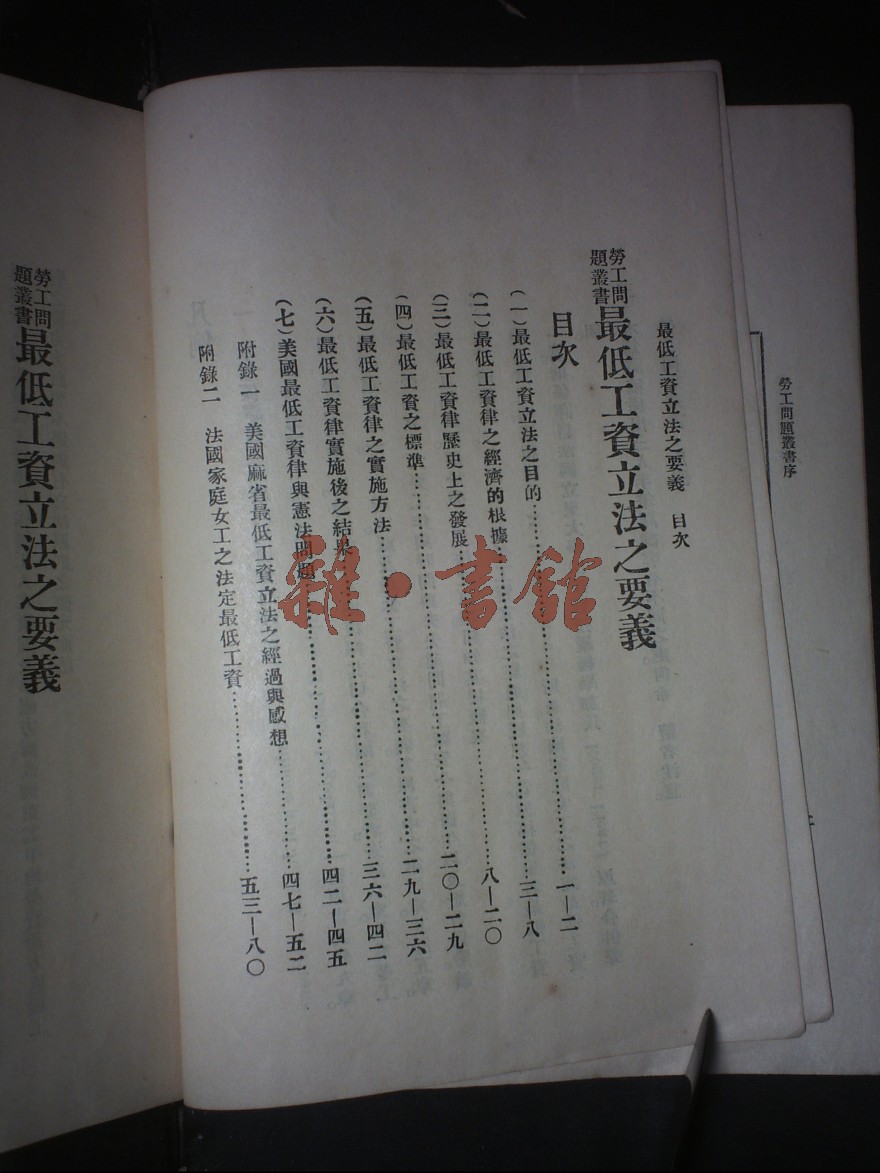 勞工問題叢書序
最低工資立法之要義　目次
勞工問題叢書 最低工資立法之要義
目次
(一)最低工資立法之目的……………一—二
(二)最低工資律之經濟的根據……………三—八
(三)最低工資律歷史上之發展……………八—二〇
(四)最低工資之標準……………二〇—二九
(五)最低工資律之實施方法……………二九—三六
(六)最低工資律實施後之結果……………三六—四二
(七)美國最低工資律與憲法問題……………四二—四五
附錄一　美國麻省最低工資立法之經過與感想……………四七—五二
附錄二　法國家庭女工之法定最低工資……………五三—八〇
勞工問題叢書 最低工資立法之要義
雜·書館